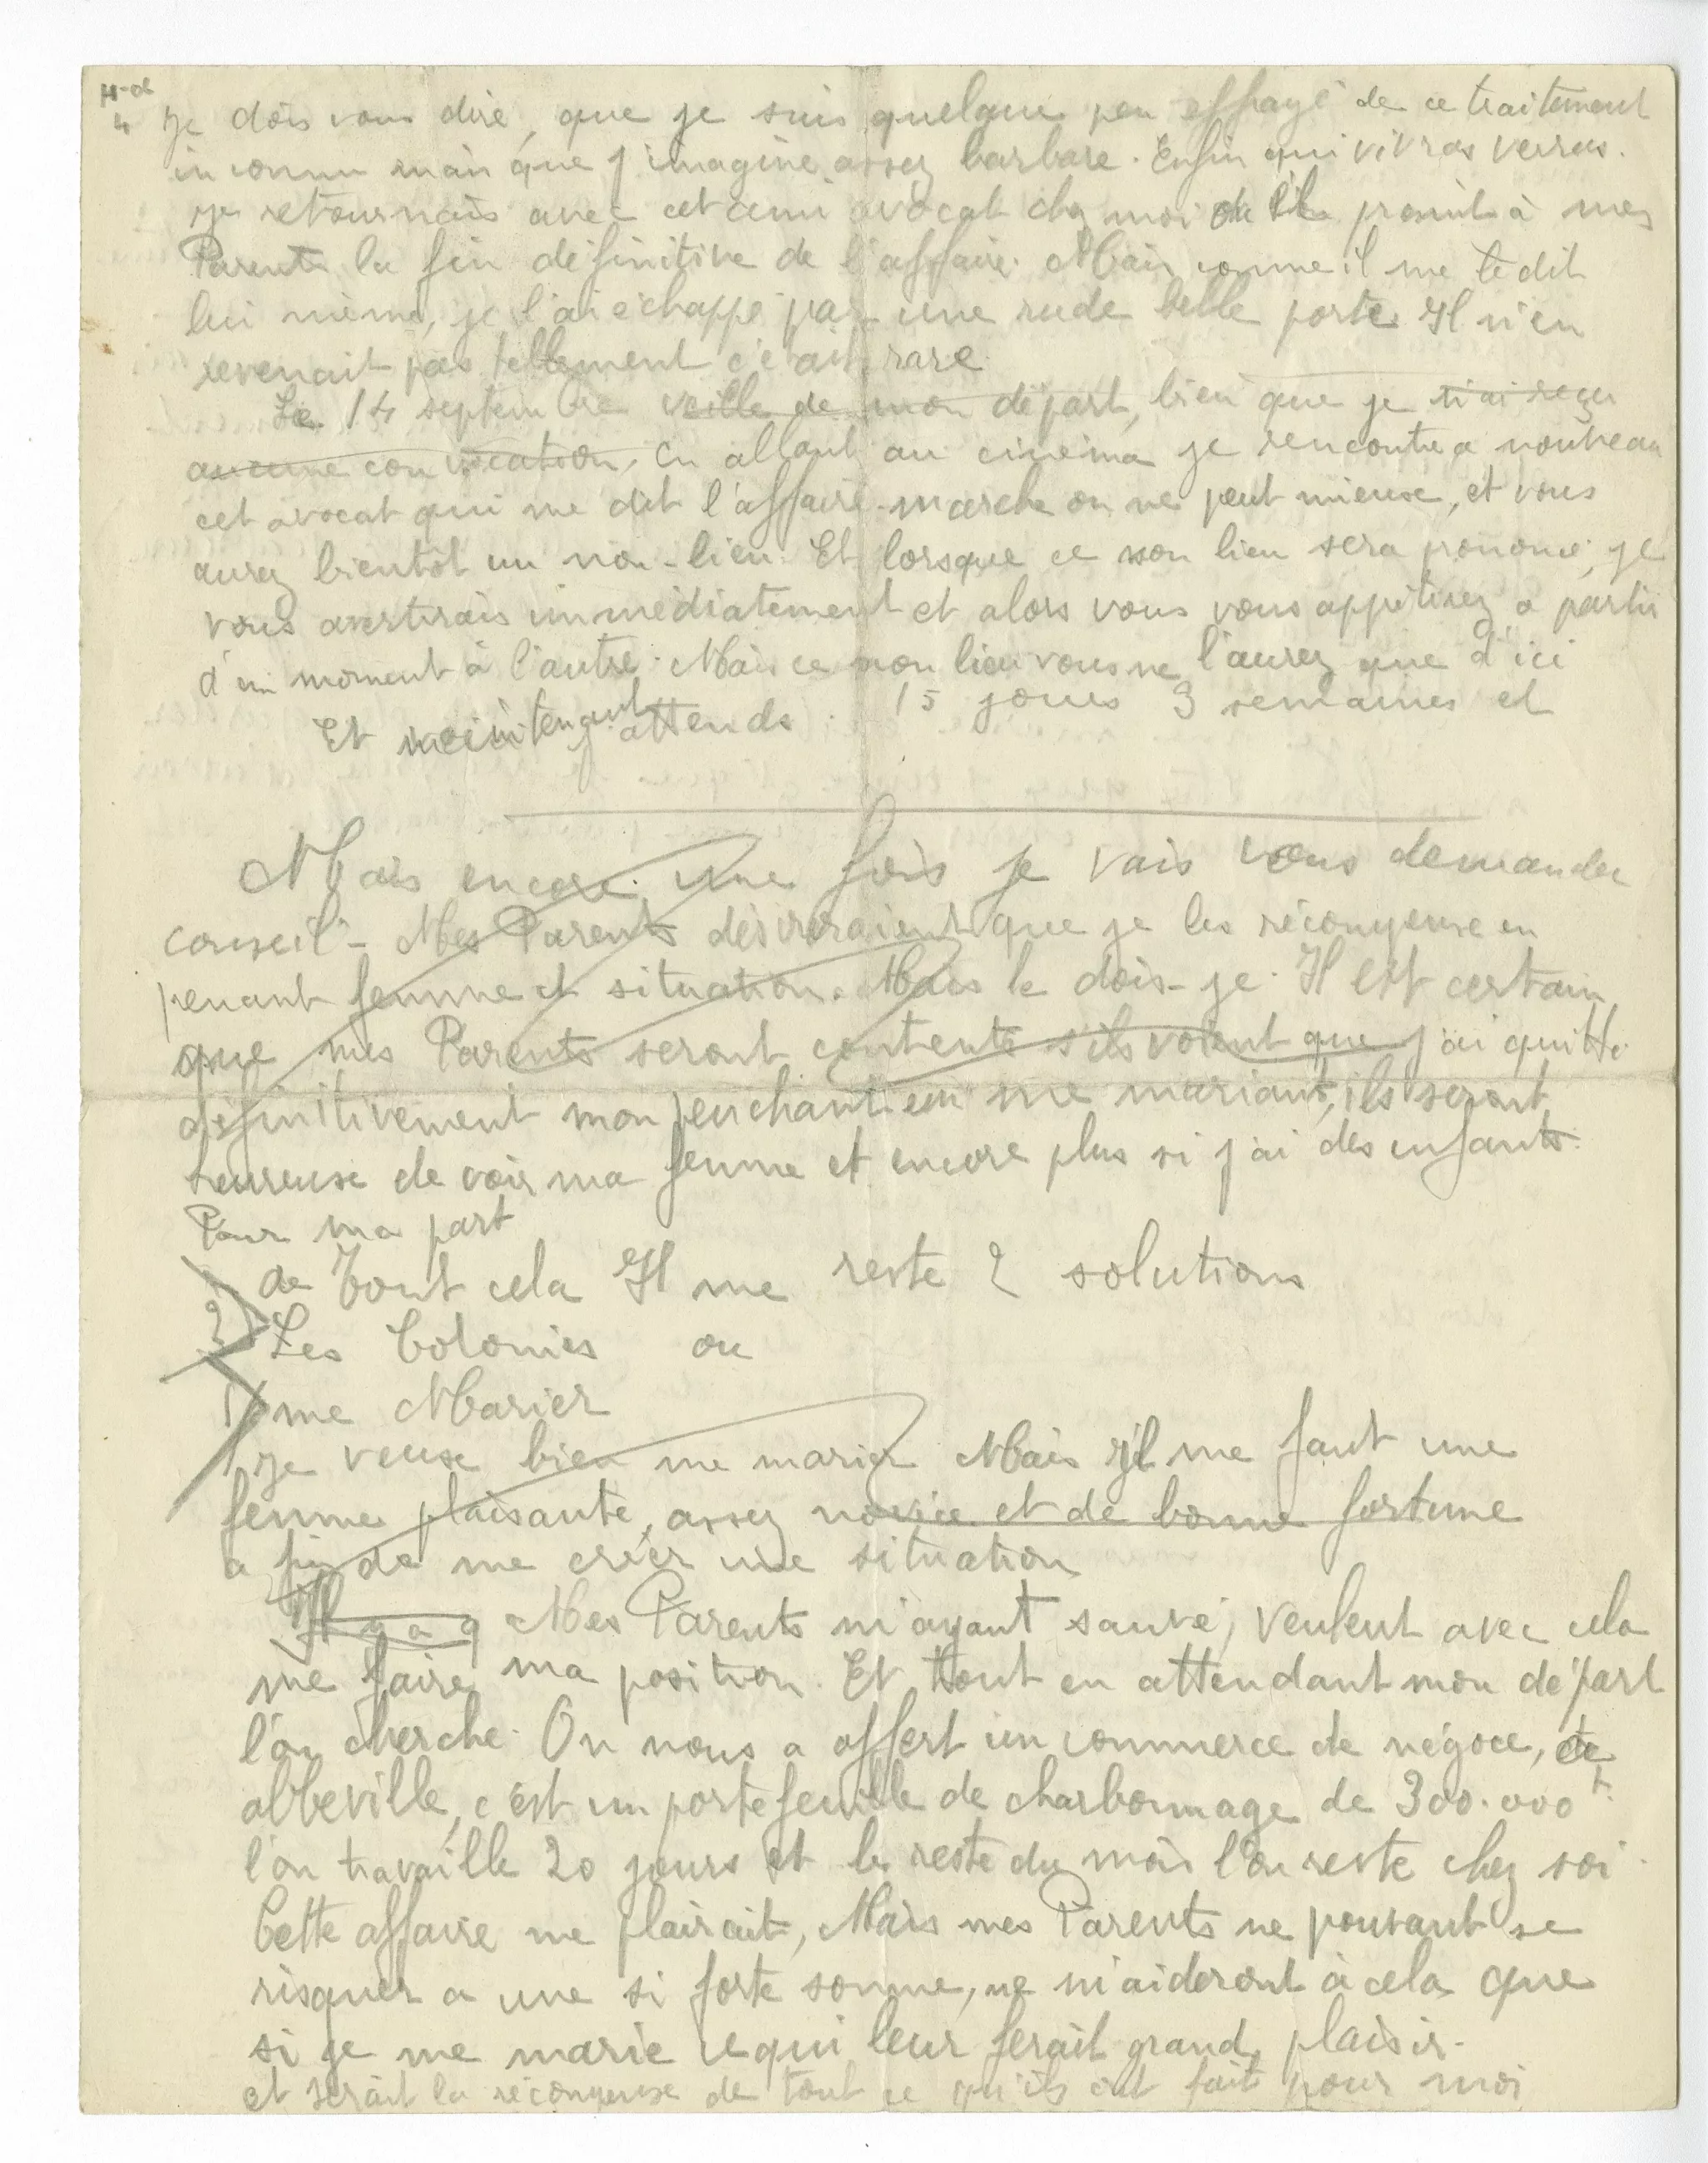 4
Je dois vous dire, que je suis quelque peu effrayé de ce traitement
inconnu mais que j'imagine assez barbare. Enfin qui vivras verras.
je retournais avec cet ami avocat chez moi où il promit à mes
Parents la fin définitive de l'affaire. Mais comme il me le dit
lui même, je l'ai échappé par une rude belle porte Il n'en
revenait pas tellement c'était rare.
Le 14 septembre veille de mon départ, bien que je n'ai reçu
aucune convocation, en allant au cinéma je rencontre a nouveau
cet avocat qui me dit l'affaire marche on ne peut mieux, et vous
aurez bientôt un non-lieu. Et lorsque ce non lieu sera prononcé, je
vous avertirais immédiatement et alors vous vous apprêtirez a partir
d'un moment à l'autre. Mais ce non lieu vous ne l'aurez que d'ici
15 jours 3 semaines et
Et maintenant j'attends.
Mais encore une fois je vais vous demander
conseil - Mes Parents désireraient que je les récompense en
penant femme et situation. Mais le dois-je. Il est certain
que mes Parents seront contents s'ils voient que j'ai quitté
définitivement mon penchant en me mariant, ils seront
heureux de voir ma femme et encore plus si j'ai des enfants.
Pour ma part
de tout cela Il me reste 2 solutions
2) Les Colonies ou
1) me Marier
je veux bien me marier Mais il me faut une
femme plaisante, assez novice et de bonne fortune
a fin de me créer une situation
Il y a 9 Mes Parents m'ayant sauvé, veulent avec cela
me faire ma position. Et tout en attendant mon départ
l'on cherche. On nous a offert un commerce de négoce, de
abbeville, c'est un portefeuille de charbonnage de 300.000 f.
l'on travaille 20 jours et le reste du mois l'on reste chez soi.
Cette affaire me plairait, Mais mes Parents ne pouvant se
risquer a une si forte somme, ne m'aideront à cela que
si je me marie ce qui leur ferait grand plaisir.
et serait la récompense de tout ce qu'ils ont fait pour moi